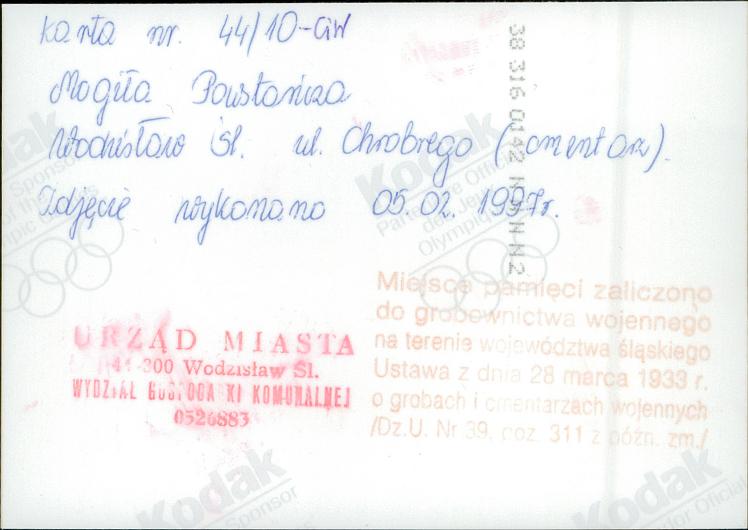 Karta nr. 44/10-CiW
Mogiła Powstańcza
Wodzisław Śl. ul. Chrobrego (cmentarz).
Zdjęcie wykonano 05.02.1997r.
38 316 0142 N N N 2
Miejsce pamięci zaliczono
do grobownictwa wojennego
na terenie województwa śląskiego
Ustawa z dnia 28 marca 1933 r.
o grobach i cmentarzach wojennych
/Dz.U. Nr 39, poz. 311 z późn. zm./
URZĄD MIASTA
44-300 Wodzisław Śl.
WYDZIAŁ GOSPODARKI KOMUNALNEJ
0526883
Kodak
Kodak
Kodak
Kodak
Sponsor